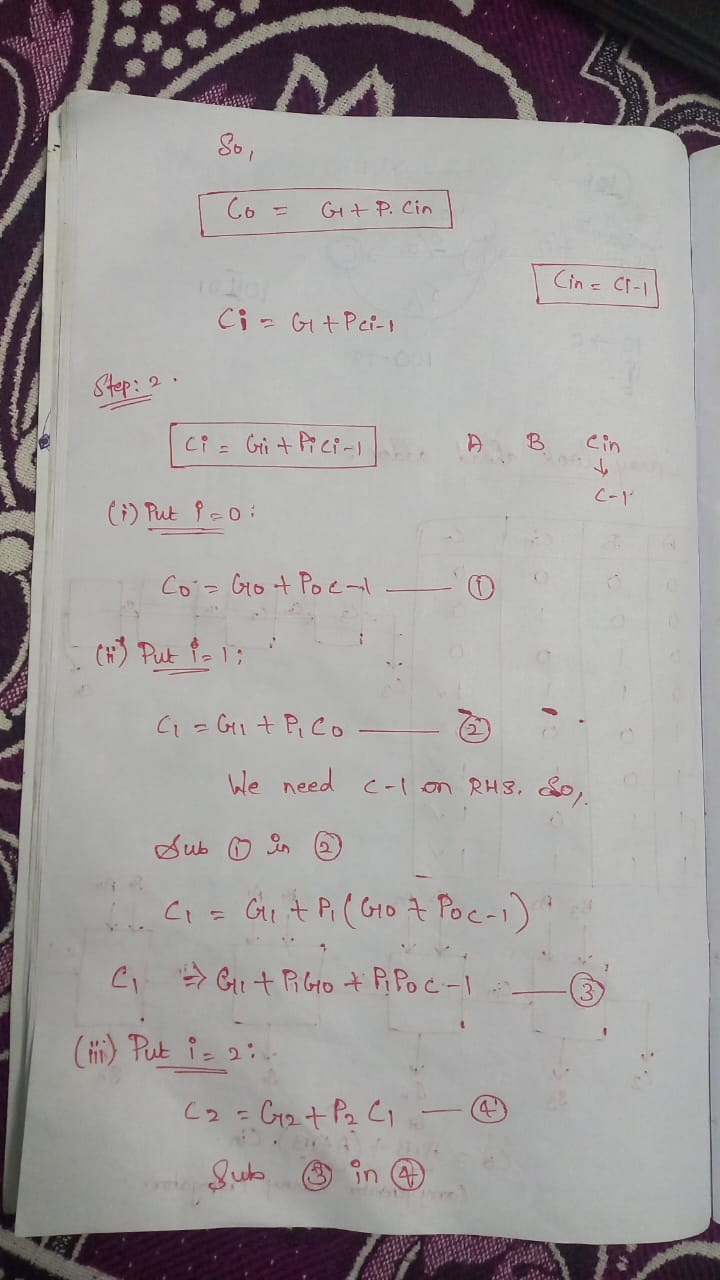 So,
Co = G + P. Cin
Cin = Ci-1
Ci = G + Pci-1
Step: 2.
Ci = Gi + PiCi-1 A B Cin
↓
C-1
(i) Put i=0:
Co = G0 + P0C-1 —— ①
(ii) Put i=1;
C1 = G1 + P1C0 —— ②
We need C-1 on RHS. So,
Sub ① in ②
C1 = G1 + P1(G0 + P0C-1)
C1 ⇒ G1 + P1G0 + P1P0C-1 —— ③
(iii) Put i = 2:
C2 = G2 + P2 C1 — ④
Sub ③ in ④